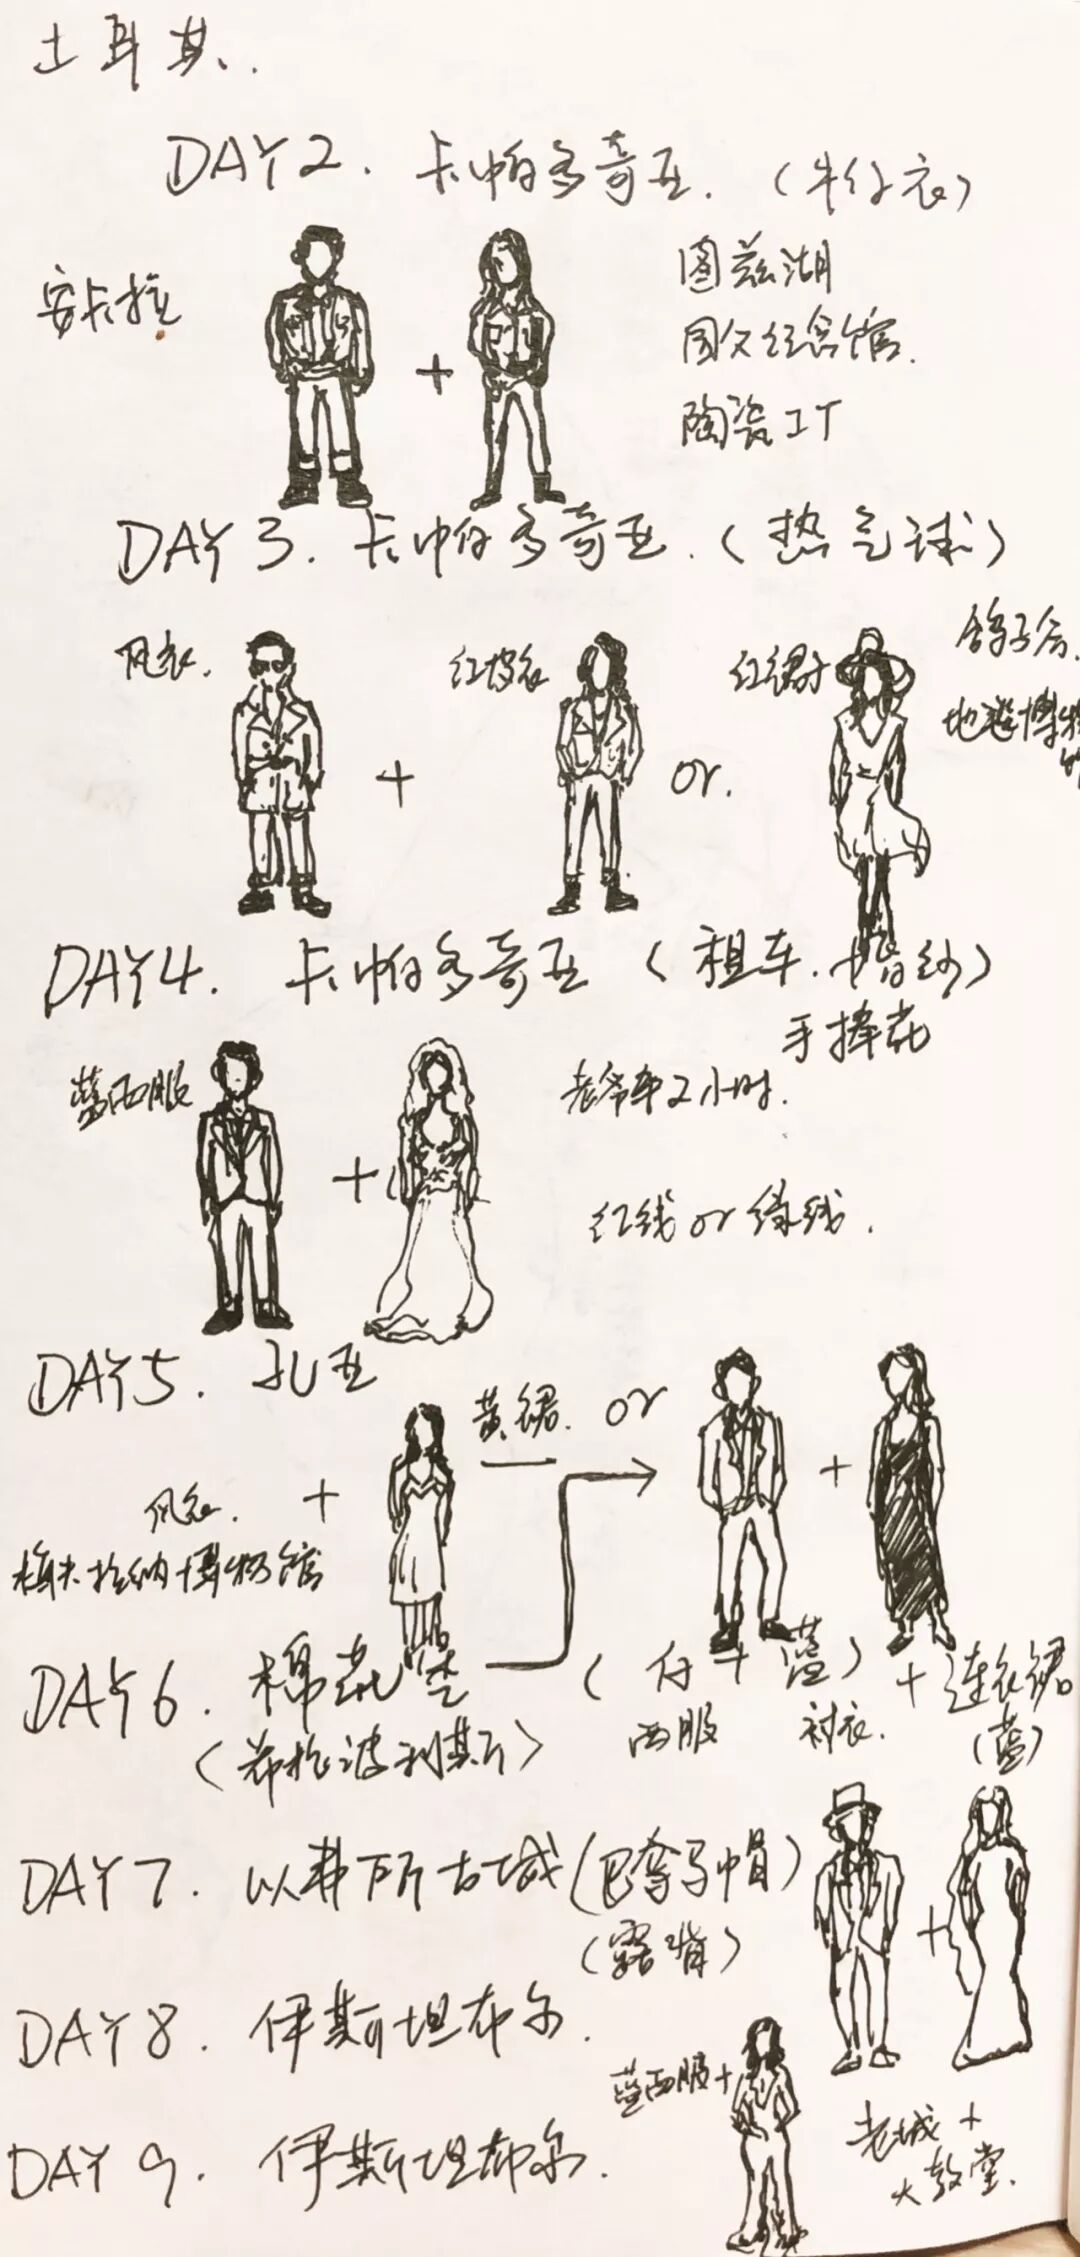 土耳其.
DAY2. 卡帕多奇亚. (牛仔衣)
安卡拉
+
图兹湖
国父纪念馆.
陶瓷工厂
DAY3. 卡帕多奇亚. (热气球)
风衣.
+
红皮衣
or.
红裙子
鸽子谷.
地毯博物
DAY4. 卡帕多奇亚 (租车.婚纱)
手捧花
蓝西服
+
老爷车2小时.
红线or绿线.
DAY5. 孔亚
风衣. +
黄裙. or
+
梅夫拉纳博物馆
DAY6. 棉花堡
(希拉波利斯)
(仔+蓝) + 连衣裙
西服 衬衣. (蓝)
DAY7. 以弗所古城 (巴拿马帽)
(露背)
+
DAY8. 伊斯坦布尔.
蓝西服+
DAY9. 伊斯坦布尔.
老城+
大教堂.